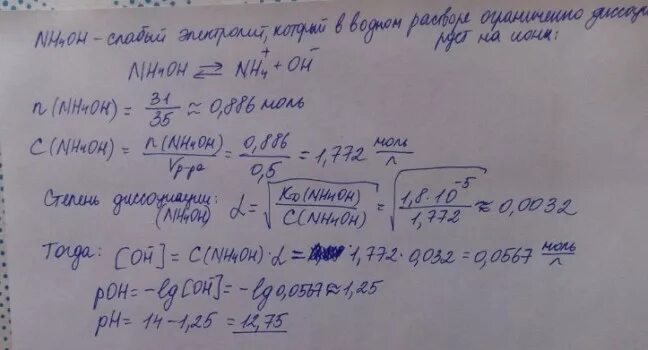 NH₄OH – слабый электролит, который в водном растворе ограниченно диссоции-
рует на ионы:
NH₄OH ⇄ NH₄⁺ + OH⁻
n(NH₄OH) = 31/35 ≈ 0,886 моль
C(NH₄OH) = n(NH₄OH)/Vр-ра = 0,886/0,5 = 1,772 моль/л
Степень диссоциации: (NH₄OH) α = √(Kᴅ(NH₄OH)/C(NH₄OH)) = √(1,8·10⁻⁵/1,772) ≈ 0,0032
Тогда: [OH⁻] = C(NH₄OH)·α = 1,772·0,032 = 0,0567 моль/л
pOH = -lg[OH⁻] = -lg0,0567 ≈ 1,25
pH = 14 - 1,25 = 12,75